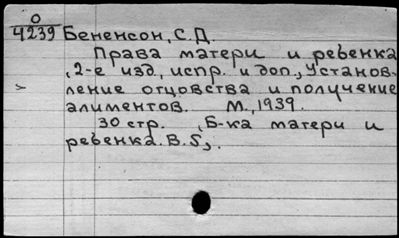 0
4239 Бененсон, С.Д.
Права матери и ребенка
, 2-е изд., испр. и доп., Установ-
ление отцовства и получение
алиментов. М., 1939.
30 стр. , Б-ка матери и
ребенка. В. 5,.